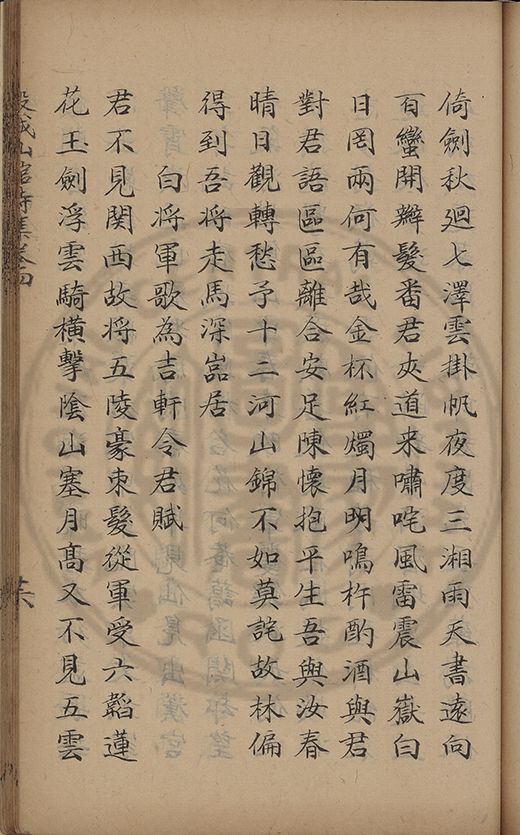 倚劍秋廻七澤雲掛帆夜度三湘雨天書遠向
百蠻開辮髮番君夾道来嘯咤風雷震山嶽白
日罔兩何有哉金杯紅燭月明鳴杵酌酒與君
對君語區區離合安足陳懷抱平生吾與汝春
晴日觀轉愁予十二河山錦不如莫詫故林偏
得到吾將走馬深嵓居
白將軍歌為吉軒令君賦
君不見関西故將五陵豪朿髮從軍受六韜蓮
花玉劍浮雲騎橫擊陰山塞月髙又不見五雲
穀城山館詩集卷四